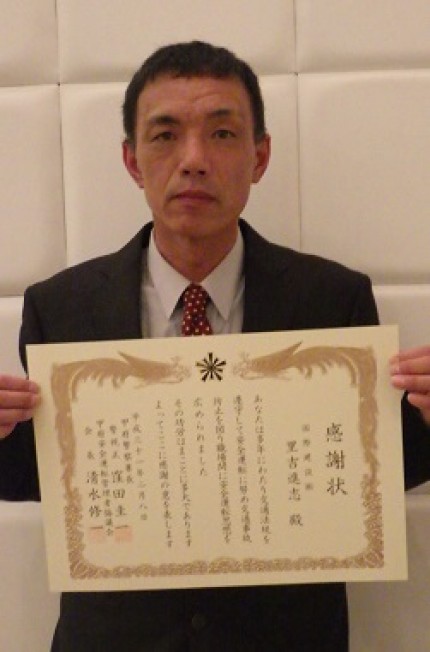 感謝状
里吉進志 殿
あなたは多年にわたり交通法規を
遵守して安全運転に努め交通事故
防止を図り職場間に安全運転思想を
広められました
その功労はまことに多大であります
よってここに感謝の意を表します
平成三十一年二月八日
甲府警察署長
警視正 窪田圭一
甲府安全運転管理者協議会
会長 清水修一